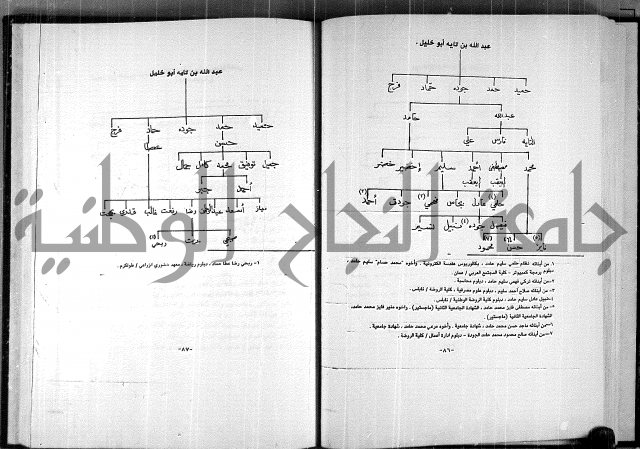 عبد الله بن تايه أبو خليل .
حميد حمد جوده حمّاد فرج
عبدالله حامد
التايه فارس علي
محمد مصطفى أحمد سليم اخضير خضر
حلمي عادل نحاس فهمي جودت أحمد
فيصل جوده نبيل تيسير
فايز حسن محمود
١ـ من أبنائه نظام حلمي سليم حامد ، بكالوريوس هندسة الكترونية . وأخوه "محمد حسام" سليم حامد ،
دبلوم برمجة كمبيوتر - كلية المجتمع العربي / عمان .
٢ـ من أبنائه تركي فهمي سليم حامد ، دبلوم محاسبة .
٣ـ من أبنائه صلاح أحمد سليم ، دبلوم علوم مصرفية ، كلية الروضة / نابلس .
٤ـ جميل عادل سليم حامد ، دبلوم كلية الروضة الوطنية / نابلس .
٥ـ من أبنائه مصطفى فايز محمد حامد ، الشهادة الجامعية الثانية (ماجستير) . وأخوه منير فايز محمد حامد ،
الشهادة الجامعية الثانية (ماجستير) .
٦ـ من أبنائه ماجد حسن محمد حامد ، شهادة جامعية . وأخوه مرعي محمد حامد ، شهادة جامعية .
٧ـ من أبنائه صالح محمود محمد حامد الجودة - دبلوم ادارة أعمال / كلية الروضة .
-٨٦-
عبد الله بن تايه أبو خليل
حميد حمد جوده حمّاد فرج
حسن عطا
جميل توفيق محمد كامل جمال
أحمد جبر
نياز أسعد عبداللطيف رضا رفعت غالب بهجت
صبحي مدحت ربحي
١- ربحي رضا عطا حماد ، دبلوم رياضة ومعهد خضوري الزراعي / طولكرم .
-٨٧-
جامعة النجاح الوطنية